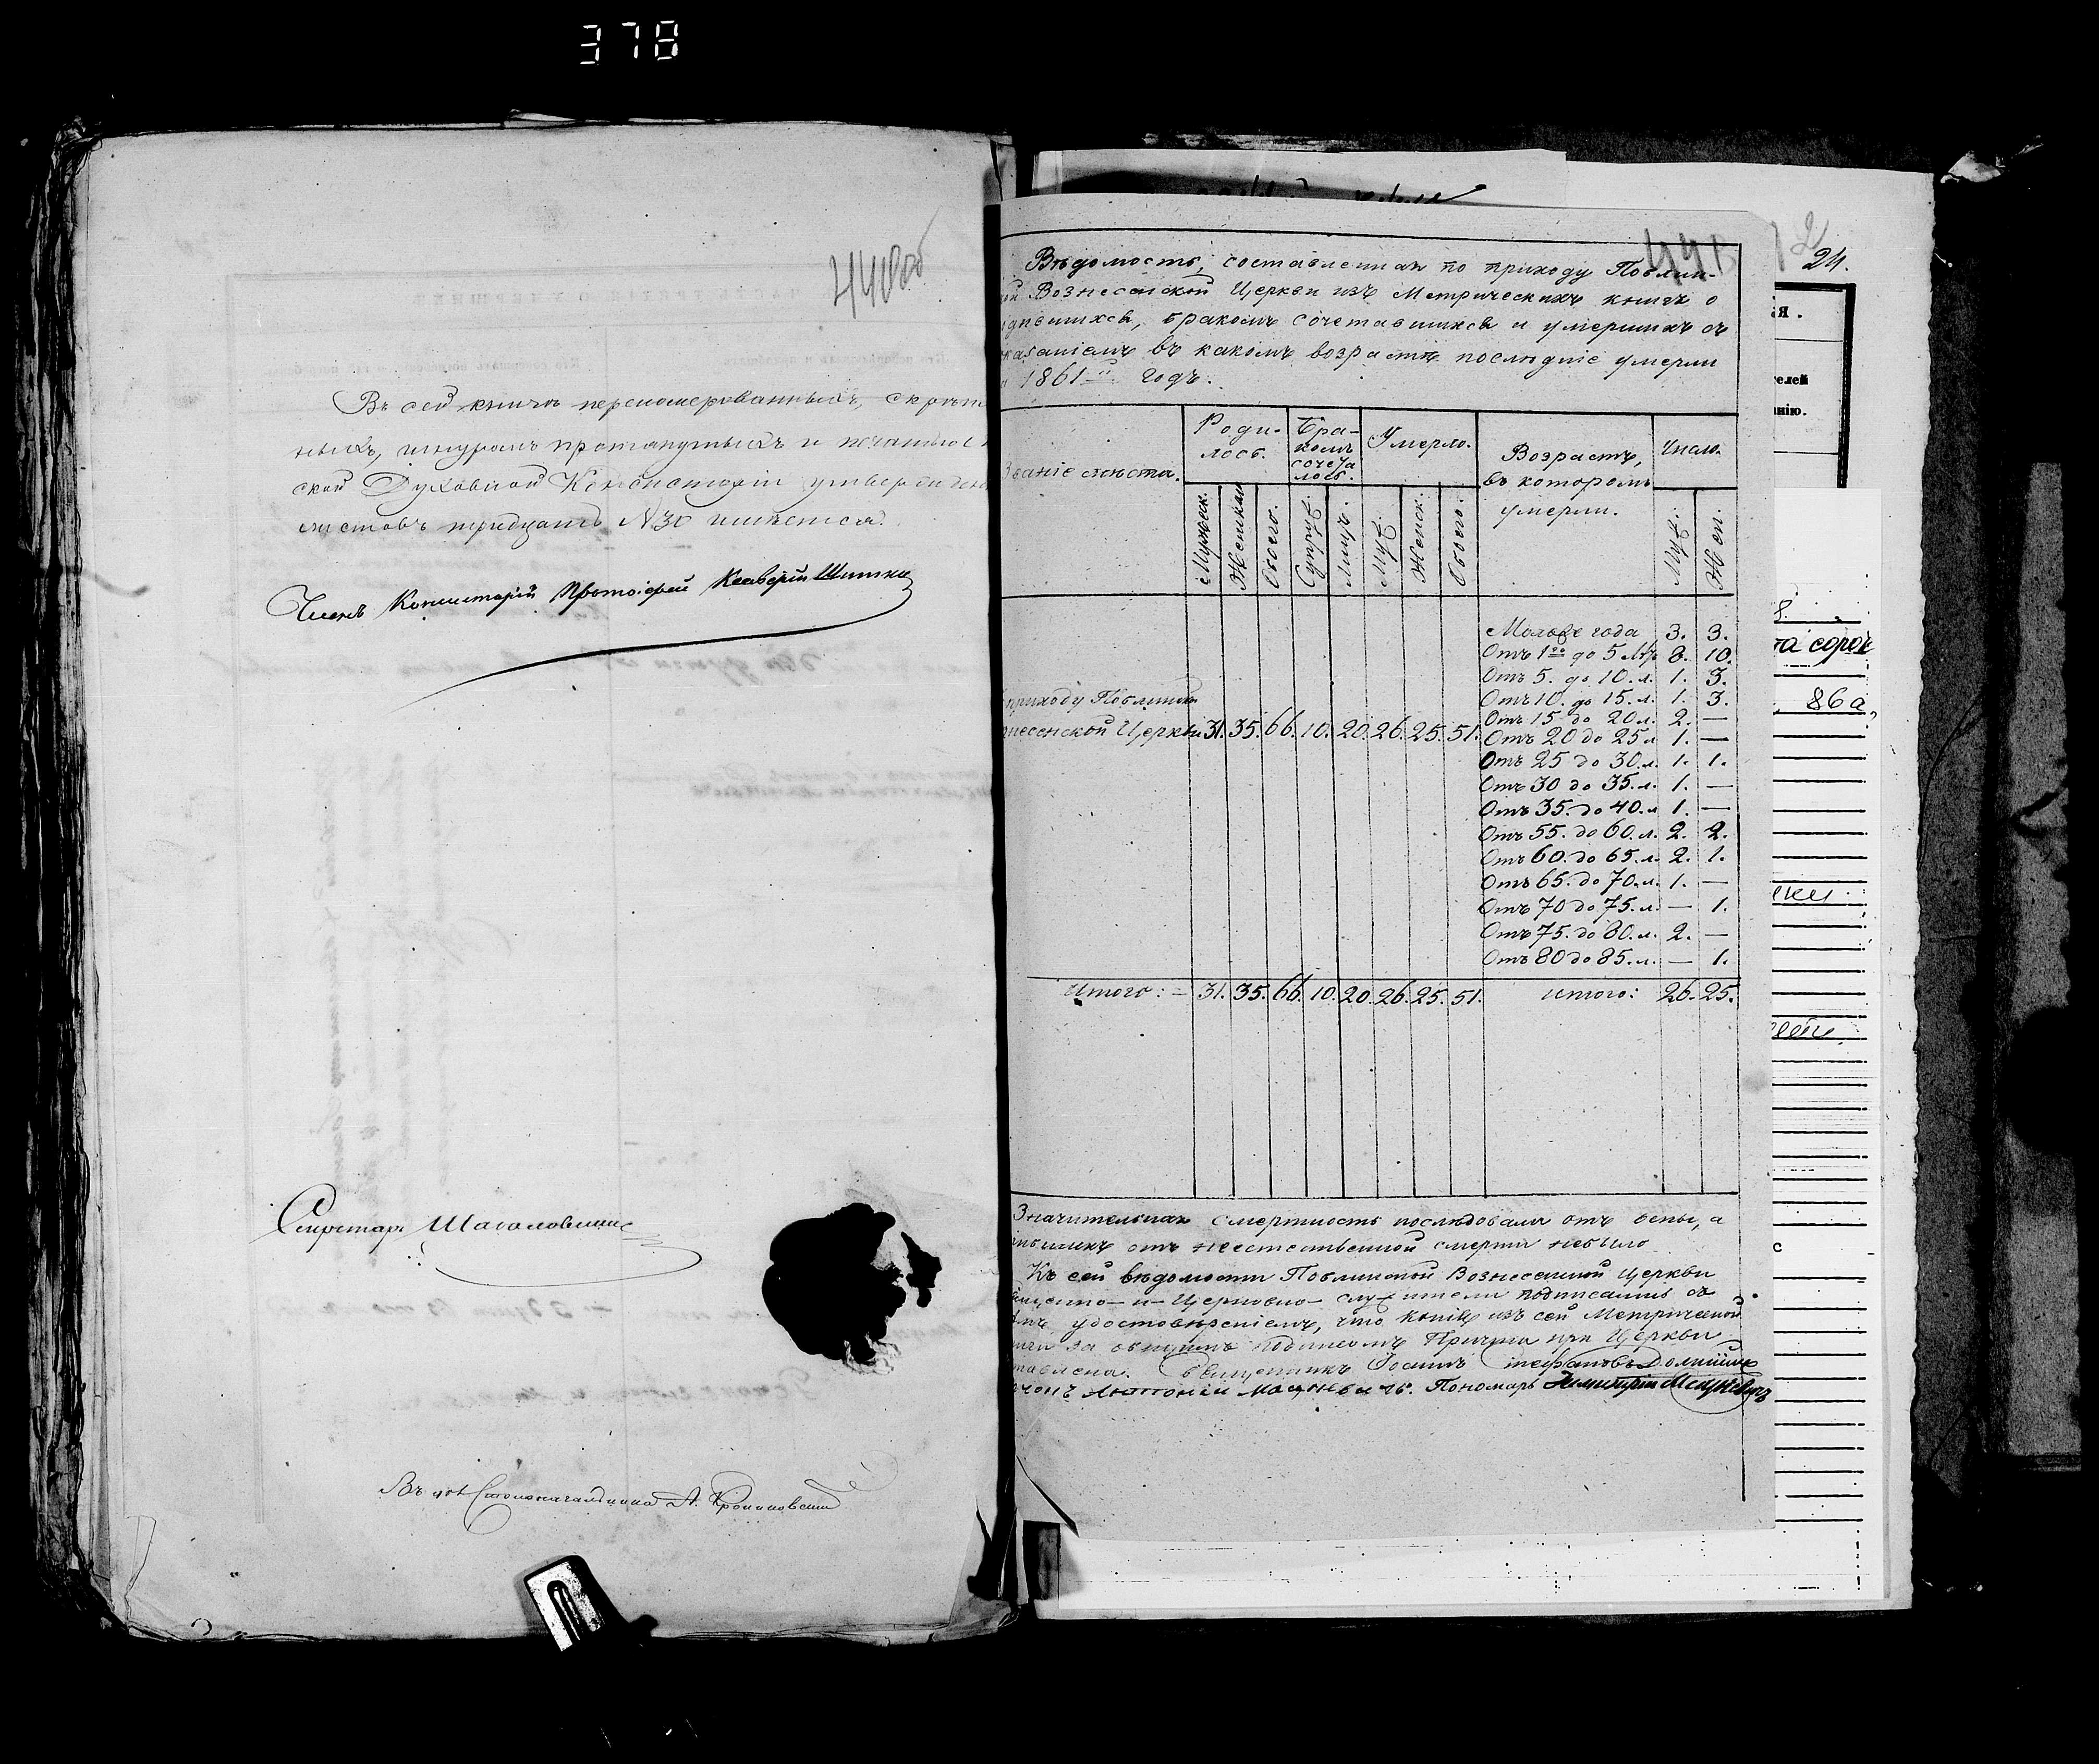 378
440об
Въ сей книгѣ перенумерованныхъ, скрѣп
ныхъ, шнуромъ протянутыхъ и печатью
ской Духовной Консисторіи утвержден
листовъ тридцать №30 имѣется.
Членъ Консисторіи Протоіерей
Секретарь
Столоначальника А.
441
24.
Вѣдомость, составленная по приходу
Вознесенской Церкви изъ Метрическихъ книгъ о
бракомъ сочетавшихся и умершихъ съ
казаніемъ въ какомъ возрастѣ послѣдніе умерли
1861й годъ.
Званіе мѣста.
Роди-
лось.
Бра-
комъ
сочета
лось.
Умерло.
Возрастъ,
въ которомъ
умерли.
Число.
Мужеск.
Женскаго
Обоего.
Супруж.
Лицъ.
Муж.
Женск.
Обоего.
Муж.
Жен.
Моложе года 3. 3.
Отъ 1го до 5 лѣтъ 8. 10.
Отъ 5. до 10. л. 1. 3.
Отъ 10. до 15. л. 1. 3.
приходу
Отъ 15 до 20 л. 2. —
несенской Церкви 31. 35. 66. 10. 20. 26. 25. 51.
Отъ 20 до 25 л. 1. —
Отъ 25 до 30. л. 1. 1.
Отъ 30 до 35. л. 1. —
Отъ 35. до 40. л. 1. —
Отъ 55. до 60. л. 2. 2.
Отъ 60. до 65. л. 2. 1.
Отъ 65. до 70. л. 1. —
Отъ 70 до 75. л. — 1.
Отъ 75. до 80. л. 2. —
Отъ 80 до 85. л. — 1.
Итого: — 31. 35. 66. 10. 20. 26. 25. 51. итого: 26. 25.
Значительная смертность послѣдовала отъ оспы, а
отъ неестественной смерти небыло
Къ сей вѣдомости Вознесенской Церкви
Церковно-служители подписались съ
удостовѣреніемъ, что копія изъ сей Метрической
за общимъ подписомъ Причта при Церкви
тавлена. Священникъ Іоаннъ
Антоній Пономарь Димитрій
ія.
телей
анію.
8.
та сорок
86 а,